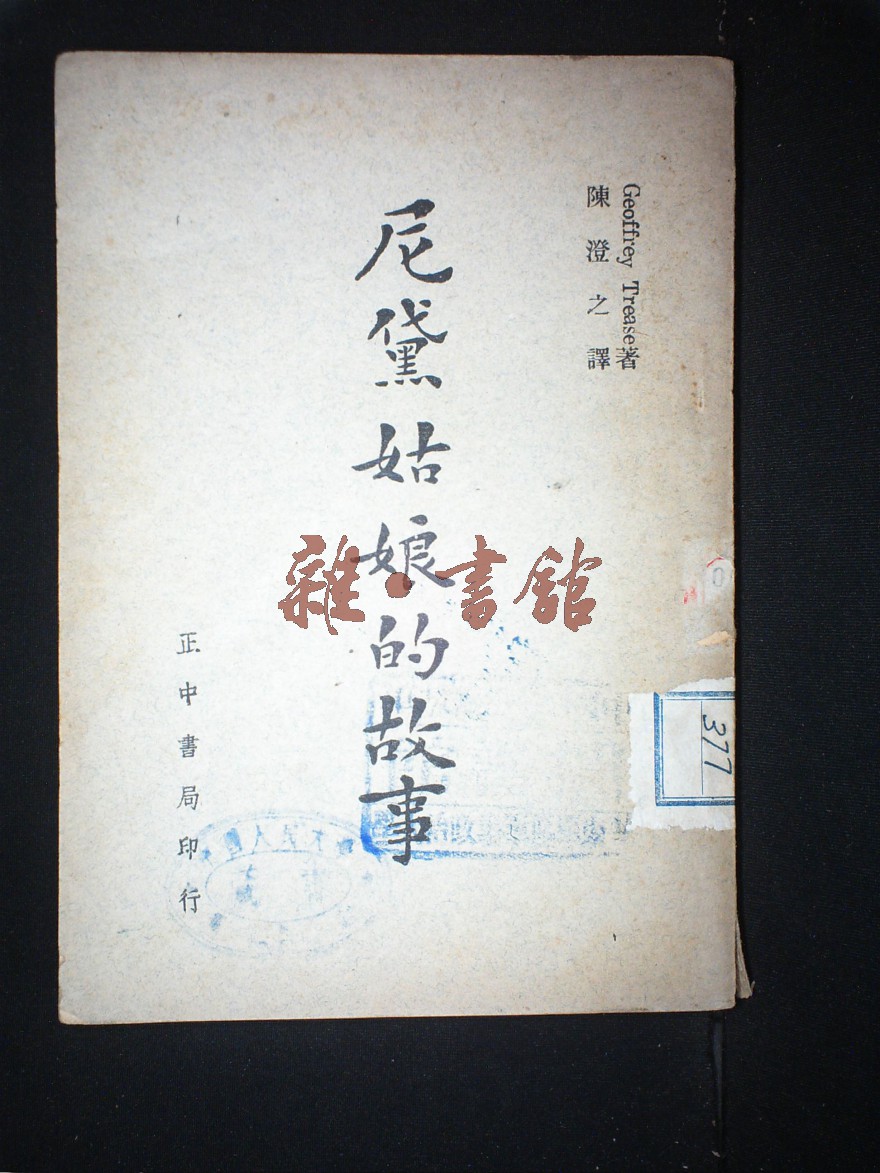 Geoffrey Trease著
陳澄之譯
尼黛姑娘的故事
正中書局印行
雜·書館
377
0